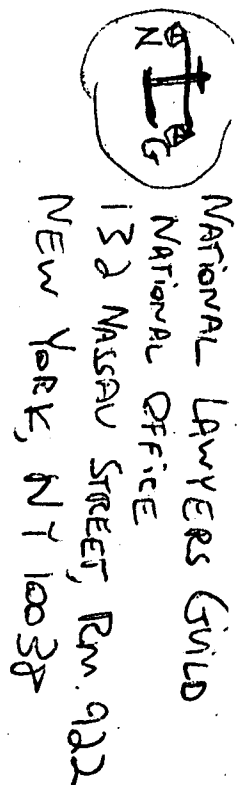 N G
NATIONAL LAWYERS GUILD
NATIONAL OFFICE
132 NASSAU STREET, Rm. 922
NEW YORK, NY 10038